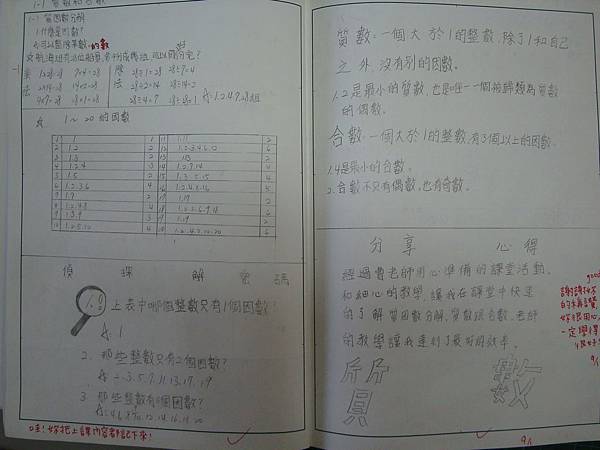 1-1 質數和合數
1-1 質因數分解
1.什麼是因數?
A:可以整除某數的數
乘 1×28=28 7×4=28
法 2×14=28 14×2=28
4×7=28 28×1=28
除 28÷1=28 28÷7=4
法 28÷2=14 28÷14=2
28÷4=7 28÷28=1 A:1.2.4.7.28組
1~20的因數
1 1 1
2 1.2 2
3 1.3 2
4 1.2.4 3
5 1.5 2
6 1.2.3.6 4
7 1.7 2
8 1.2.4.8 4
9 1.3.9 3
10 1.2.5.10 4
11 1.11 2
12 1.2.3.4.6.12 6
13 1.13 2
14 1.2.7.14 4
15 1.3.5.15 4
16 1.2.4.8.16 5
17 1.17 2
18 1.2.3.6.9.18 6
19 1.19 2
20 1.2.4.5.10.20 6
偵探解密碼
1.上表中哪個整數只有1個因數?
A:1
2.那些整數只有2個因數?
A:2.3.5.7.11.13.17.19
3.那些整數有3個因數?
A:4.6.8.9.10.12.14.16.18.20
哇!好把上課內容都記下來!
質數:一個大於1的整數,除了1和自己
之外,沒有別的因數。
1.2是最小的質數,也是唯一一個被歸類為質數
的偶數。
合數:一個大於1的整數,有3個以上的因數。
1.4是最小的合數。
2.合數不只有偶數,也有奇數。
分享心得
經過費老師用心準備的課堂活動,
和細心的教學,讓我在課堂中快速
的了解質因數分解、質數跟合數,老師
的教學讓我達到了最好的效率。
質數
good
謝謝
的稱讚
妳很用心,
一定學得
很好
9/1
9/1